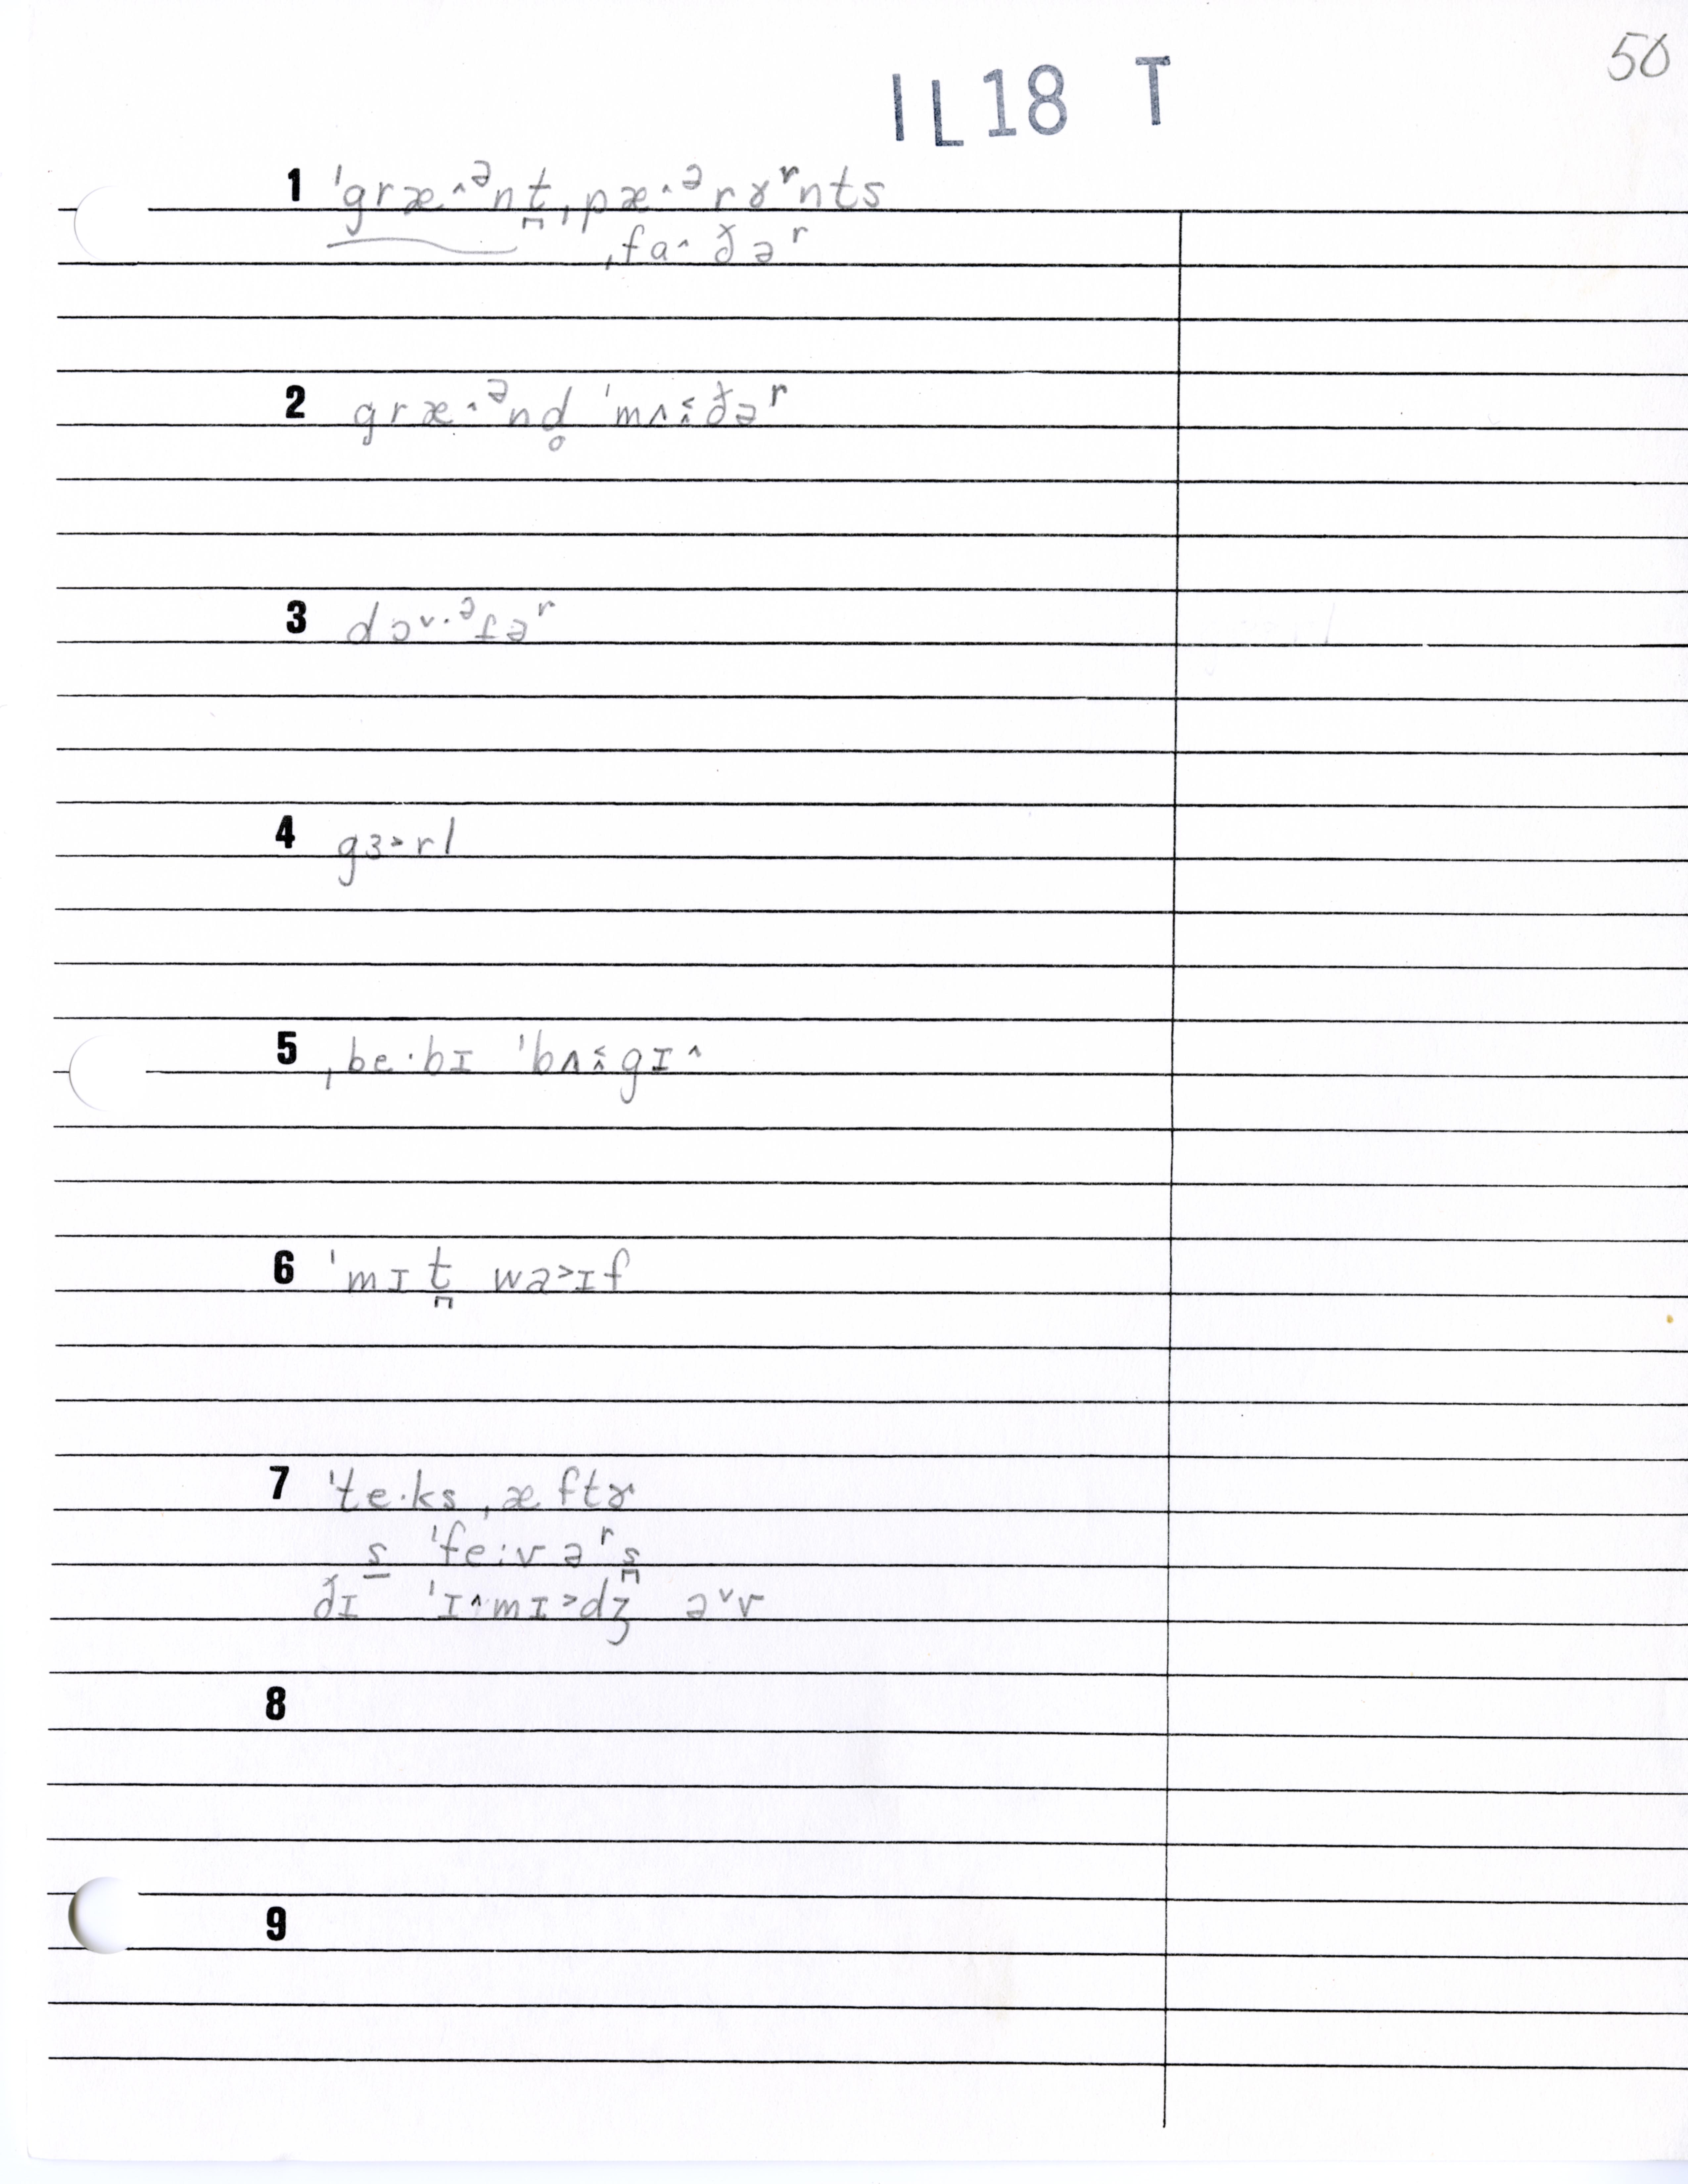 50
IL18 T
1 ˈgræ˄·ᵊnt̪ˌpæ˄·ᵊrɤʳnts
ˌfa˄ðəʳ
2 græ˄·ᵊnd̥ ˈmʌ˂˄ðəʳ
3 dɔ˅·ᵊfəʳ
4 gɜ˃rl
5 ˌbe·bɪ ˈbʌ˂˄gɪ˄
6 ˈmɪt̪ wa˃ɪf
7 ˈte·ks ˌæftɤ
s̠ ˈfe:vəʳs̪
ðɪ ˈɪ˄mɪ˃dʒ ə˅v
8
9